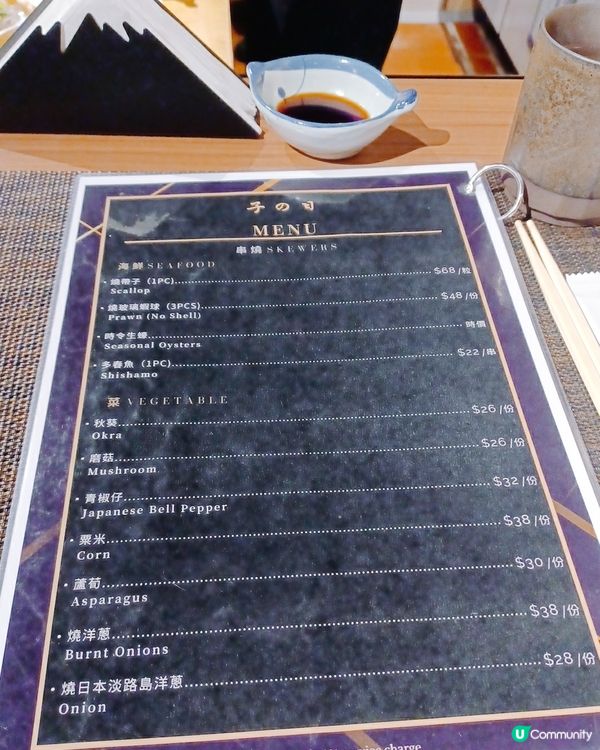 子の日
MENU
串燒 SKEWERS
海鮮 SEAFOOD
· 燒帶子（1PC）........ $68/粒
Scallop
· 燒玻璃蝦球（3PCS）........ $48/份
Prawn (No Shell)
· 時令生蠔........ 時價
Seasonal Oysters
· 多春魚（1PC）........ $22/串
Shishamo
菜 VEGETABLE
· 秋葵........ $26/份
Okra
· 磨菇........ $26/份
Mushroom
· 青椒仔........ $32/份
Japanese Bell Pepper
· 粟米........ $38/份
Corn
· 蘆荀........ $30/份
Asparagus
· 燒洋蔥........ $38/份
Burnt Onions
· 燒日本淡路島洋蔥........ $28/份
Onion
charge
U Community